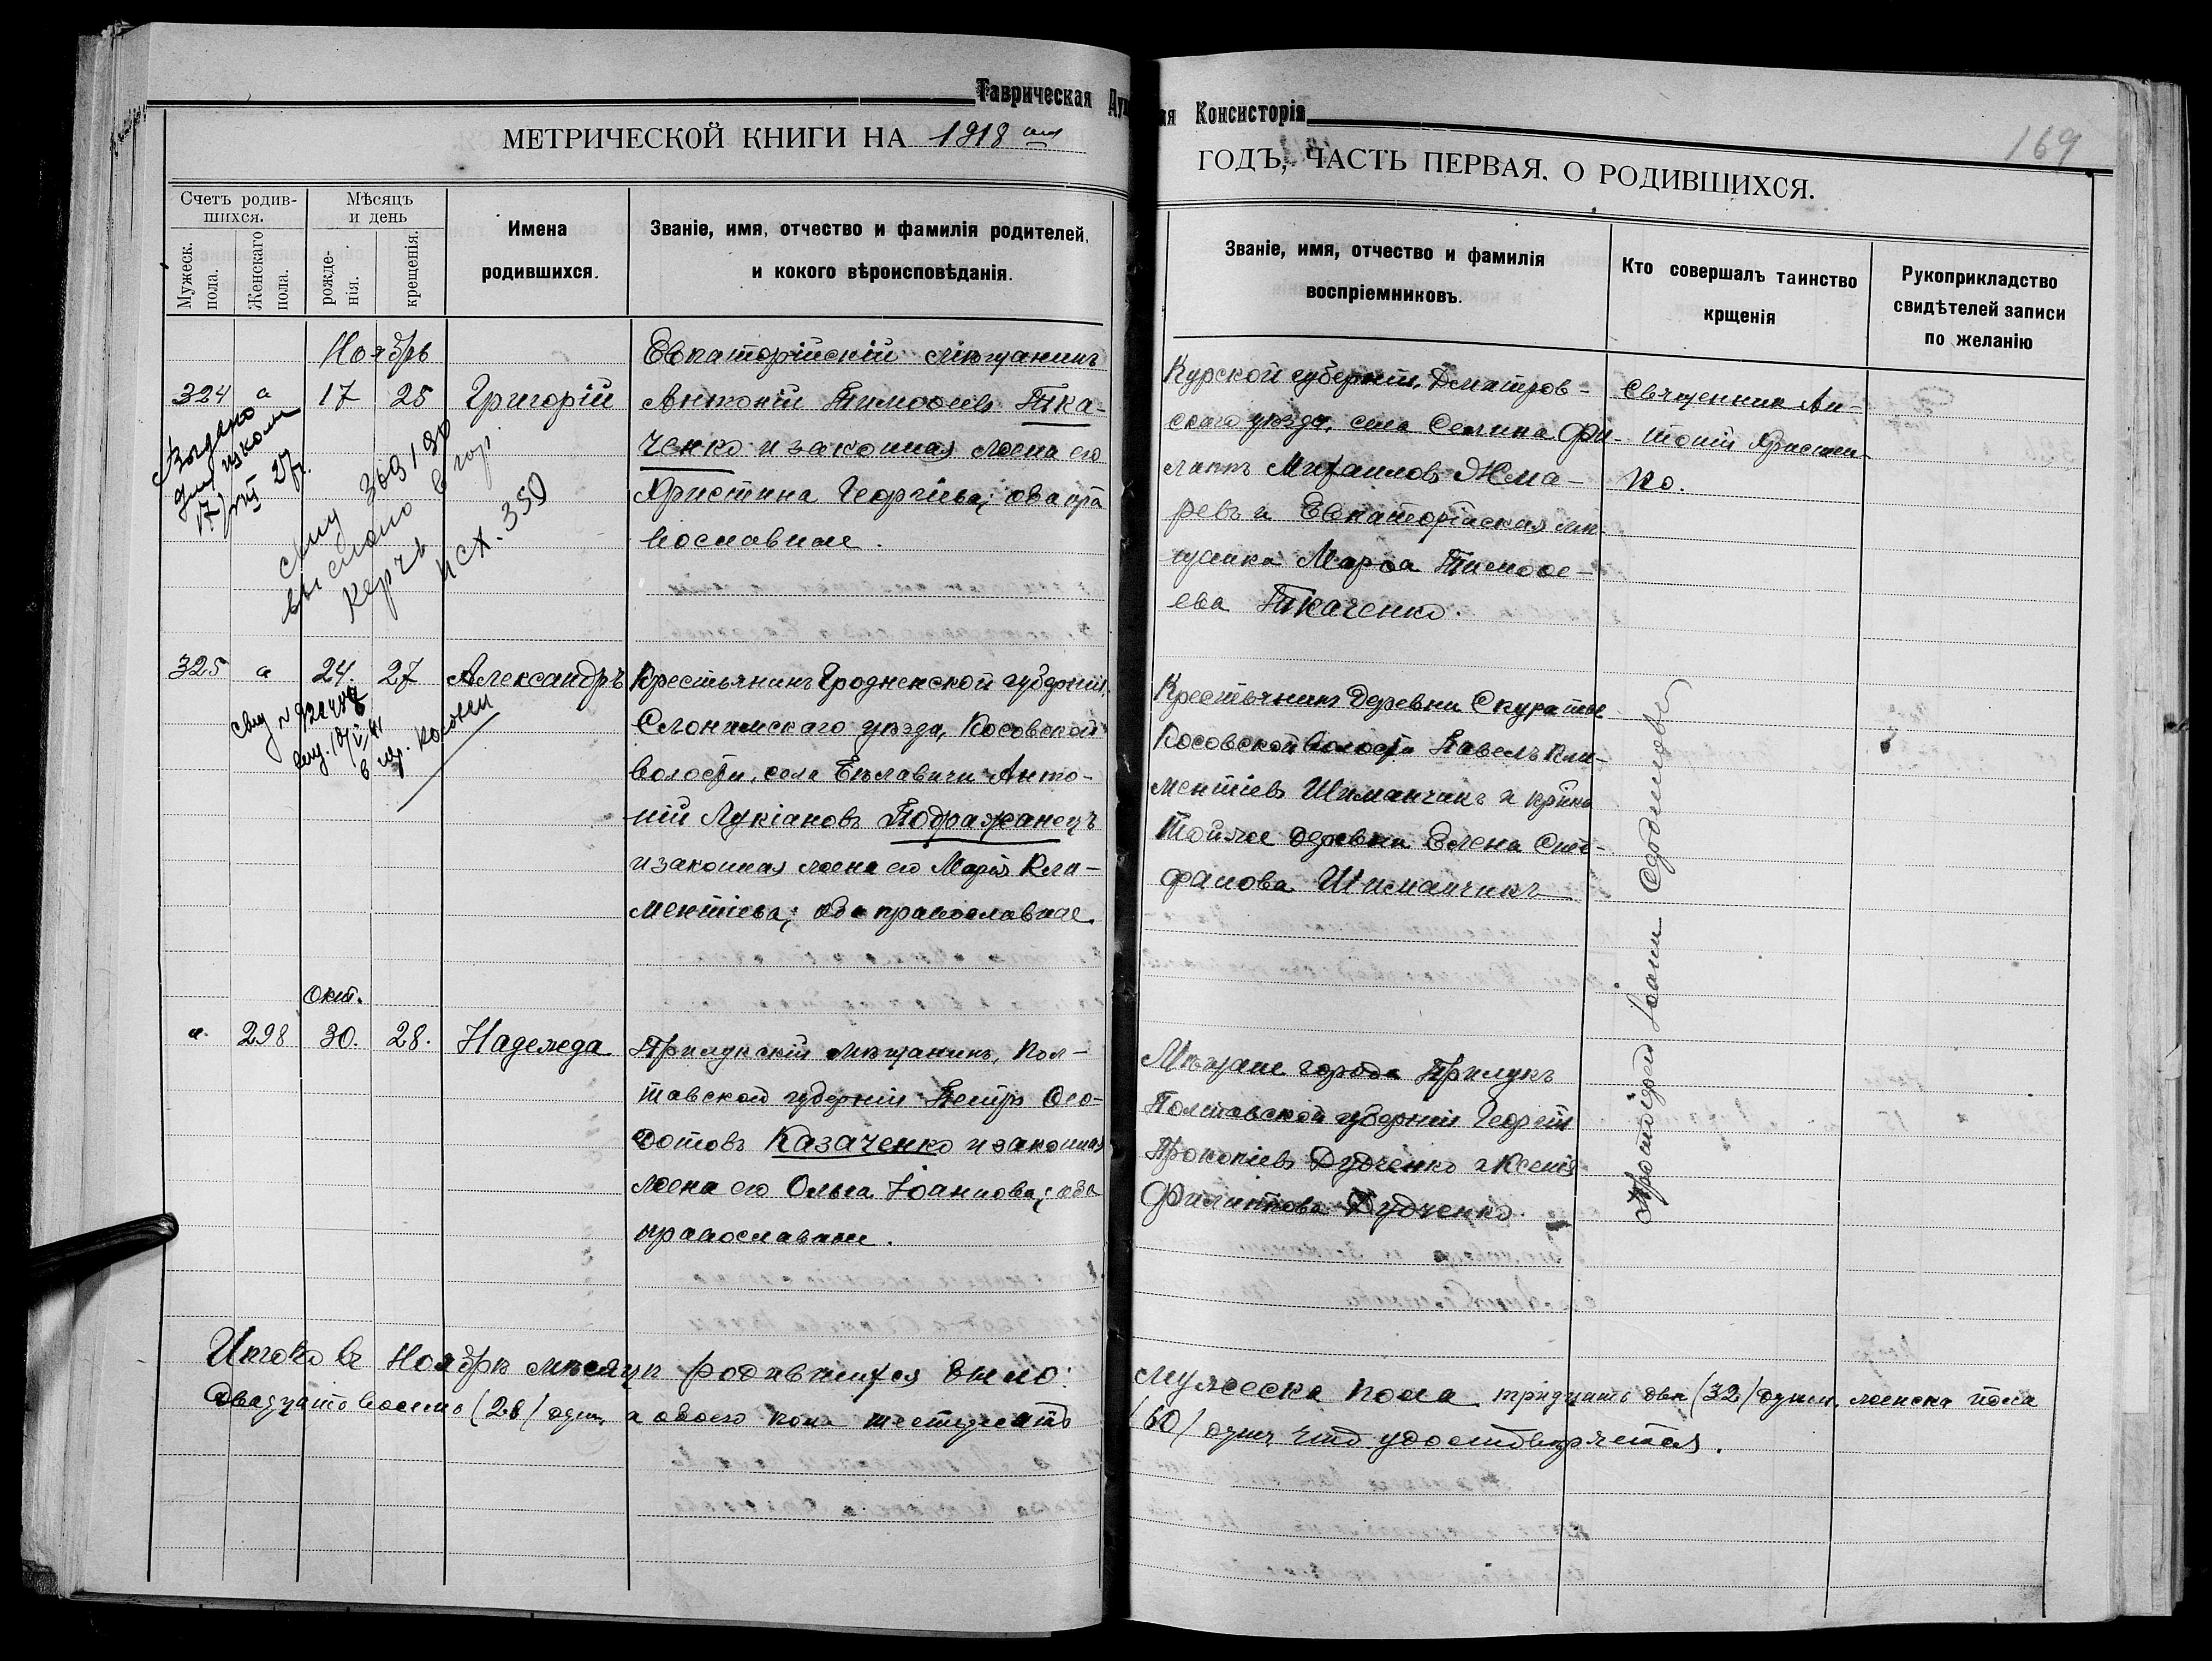 Таврическая Духовная Консисторія
169
МЕТРИЧЕСКОЙ КНИГИ НА 1918 ый
ГОДЪ, ЧАСТЬ ПЕРВАЯ. О РОДИВШИХСЯ.
Счетъ родив-
шихся.
Мужеск.
пола.
Женскаго
пола.
Мѣсяцъ
и день
рожде-
нія.
крещенія.
Имена
родившихся.
Званіе, имя, отчество и фамилія родителей,
и кокого вѣроисповѣданія.
Званіе, имя, отчество и фамилія
воспріемниковъ.
Кто совершалъ таинство
крщенія
Рукоприкладство
свидѣтелей записи
по желанію
Ноябрь
324 а 17 25 Григорій
Евпаторійскій мѣщанинъ
Антоній Тимофеевъ Тка-
ченко и законная жена его
Христина Георгіева; оба пра
вославные.
Курской губерніи, Дмитров-
скаго уѣзда, села Селина Фи-
липпъ Михаиловъ Жма-
ревъ и Евпаторійская мѣ-
щанка Марѳа Тимоѳе-
ева Ткаченко.
Священникъ Ан-
тоній Христен-
ко.
Выдано
для школы
17/VIII 27 г.
выслано в гор.
Керчь
исх. 350
325 а 24. 27 Александръ
Крестьянинъ Гродненской губерніи,
Слонимскаго уѣзда, Косовской
волости, села Бѣлавичи Анто-
ній Лукіановъ Подражанецъ
и законная жена его Марія Кли-
ментіева; оба православные.
Крестьянинъ деревни Скураты
Косовской волости Павелъ Кли-
ментіевъ Шиманчикъ и
той же деревни Елена Сте-
фанова Шиманчикъ
Протоіерей Іоаннъ
Окт.
а. 298 30. 28. Надежда
Прилукскій мѣщанинъ, Пол-
тавской губерніи Петръ Ѳео-
дотовъ Казаченко и законная
жена его Ольга Іоаннова; оба
православные.
Мѣщане города Прилукъ
Полтавской губерніи Георгій
Прокопіевъ Дудченко и Ксенія
Филиппова Дудченко.
Итого въ Ноябрѣ мѣсяцѣ родившихся было: мужеска пола тридцать два (32) душъ, женска пола
двадцать восемь (28) душъ, а обоего пола шестьдесятъ (60) душъ что удостовѣряется.